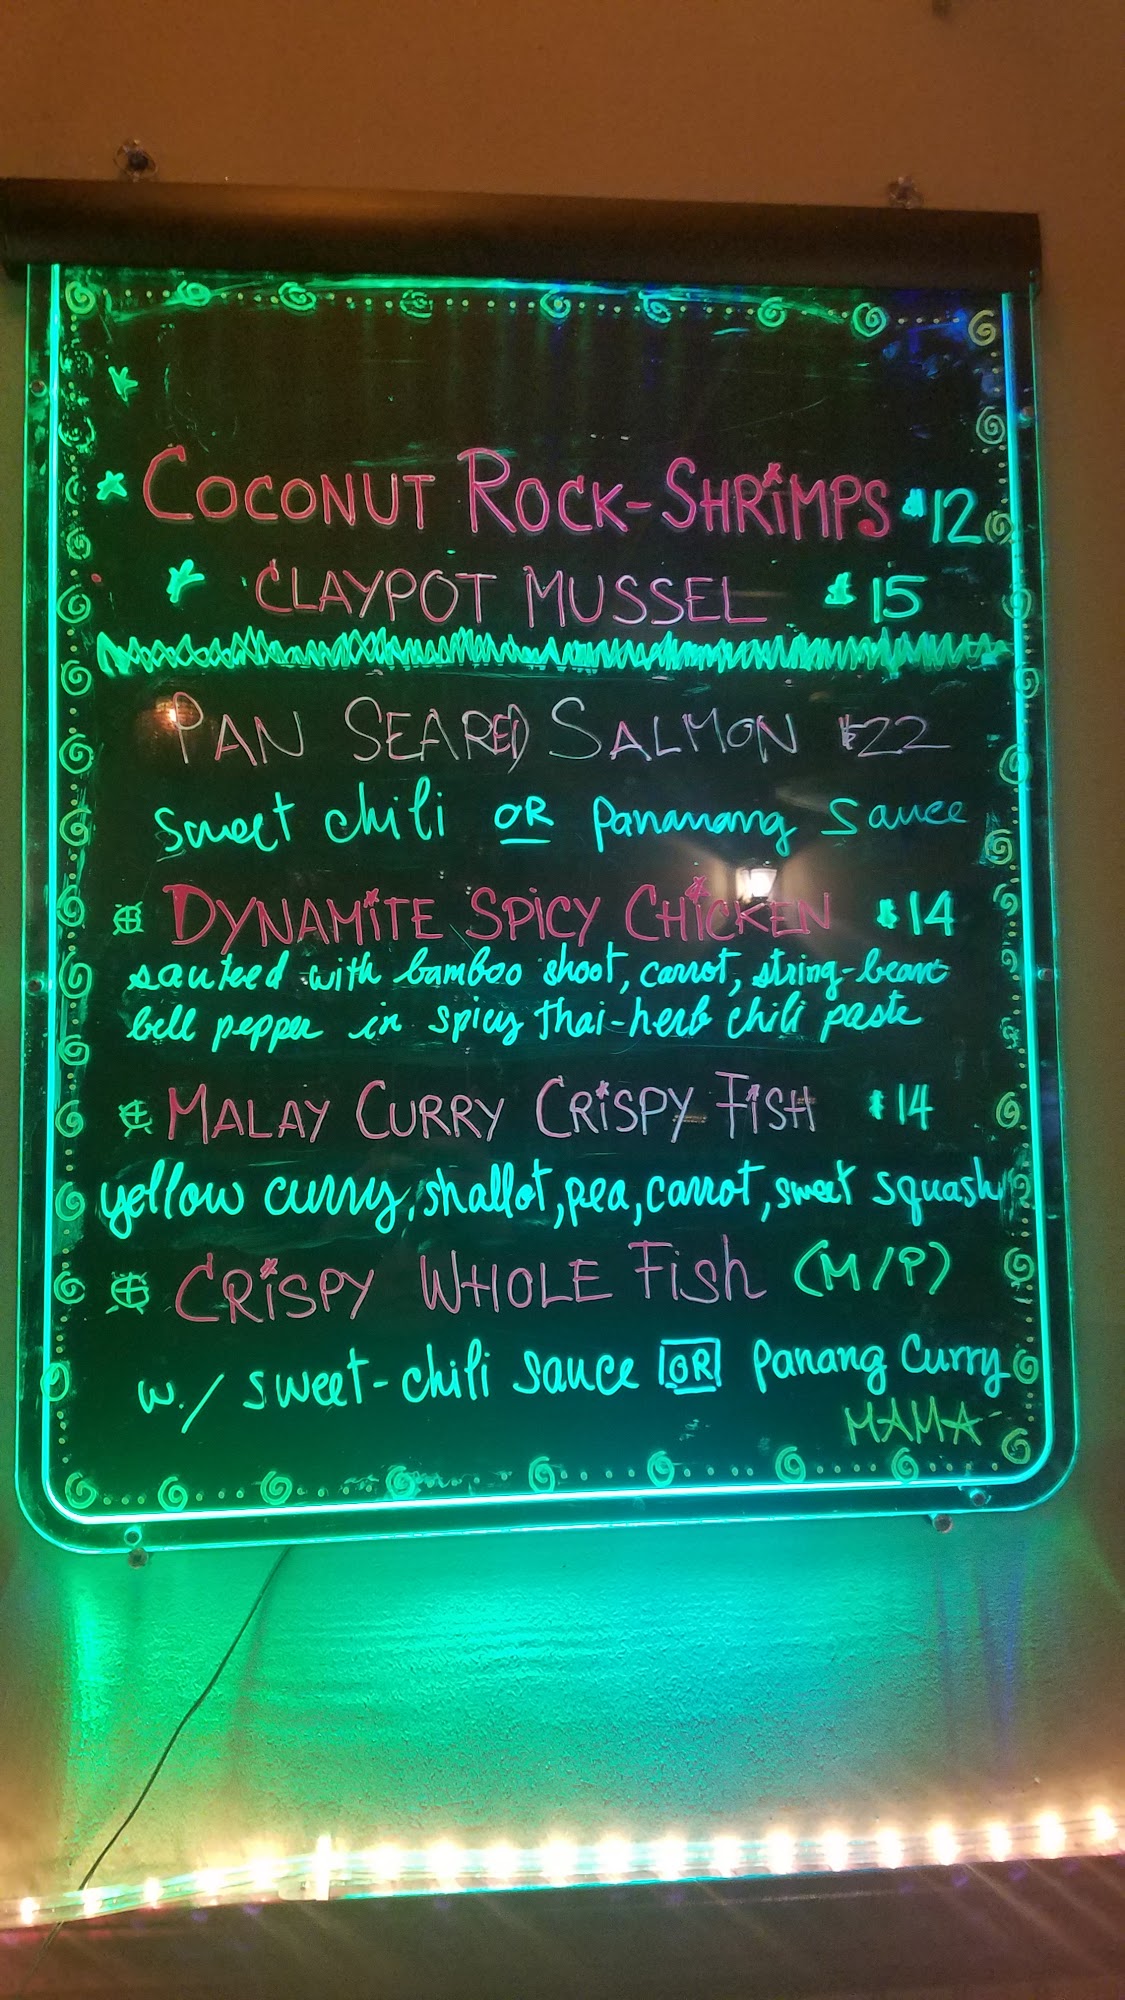 COCONUT ROCK-SHRIMPS $12
CLAYPOT MUSSEL $15
PAN SEARED SALMON $22
sweet chili OR Pananang sauce
DYNAMITE SPICY CHICKEN $14
sauteed with bamboo shoot, carrot, string-bean
bell pepper in spicy thai-herb chili paste
MALAY CURRY CRISPY FISH $14
yellow curry, shallot, pea, carrot, sweet squash
CRISPY WHOLE FISh (M/P)
w./ sweet-chili sauce OR Panang Curry
MAMA